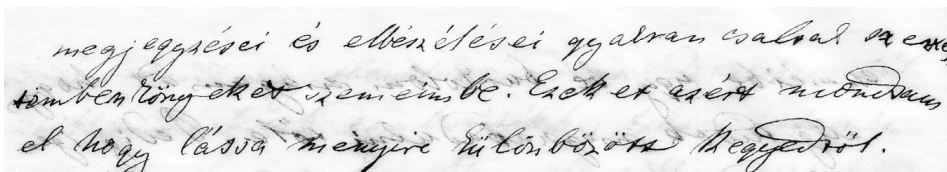 megjegyzései és elbészélései gyakran csaltak
könyeket szemeimbe. Ezeket azért mondtam
el hogy lássa mennyire különbözött Kegyedtől.